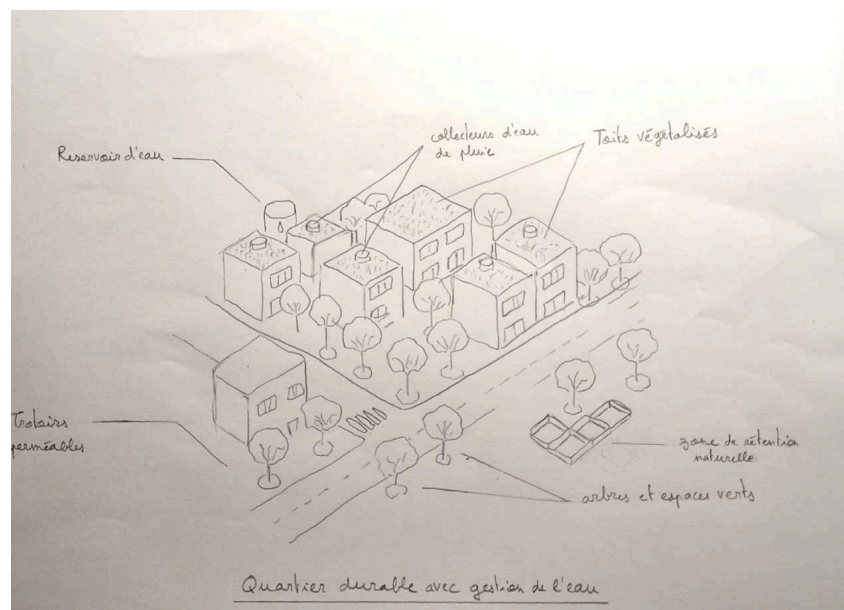 collecteurs d'eau
de pluie
Toits végétalisés
Reservoir d'eau
Trotoirs
perméables
zone de rétention
naturelle
arbres et espaces verts
Quartier durable avec gestion de l'eau